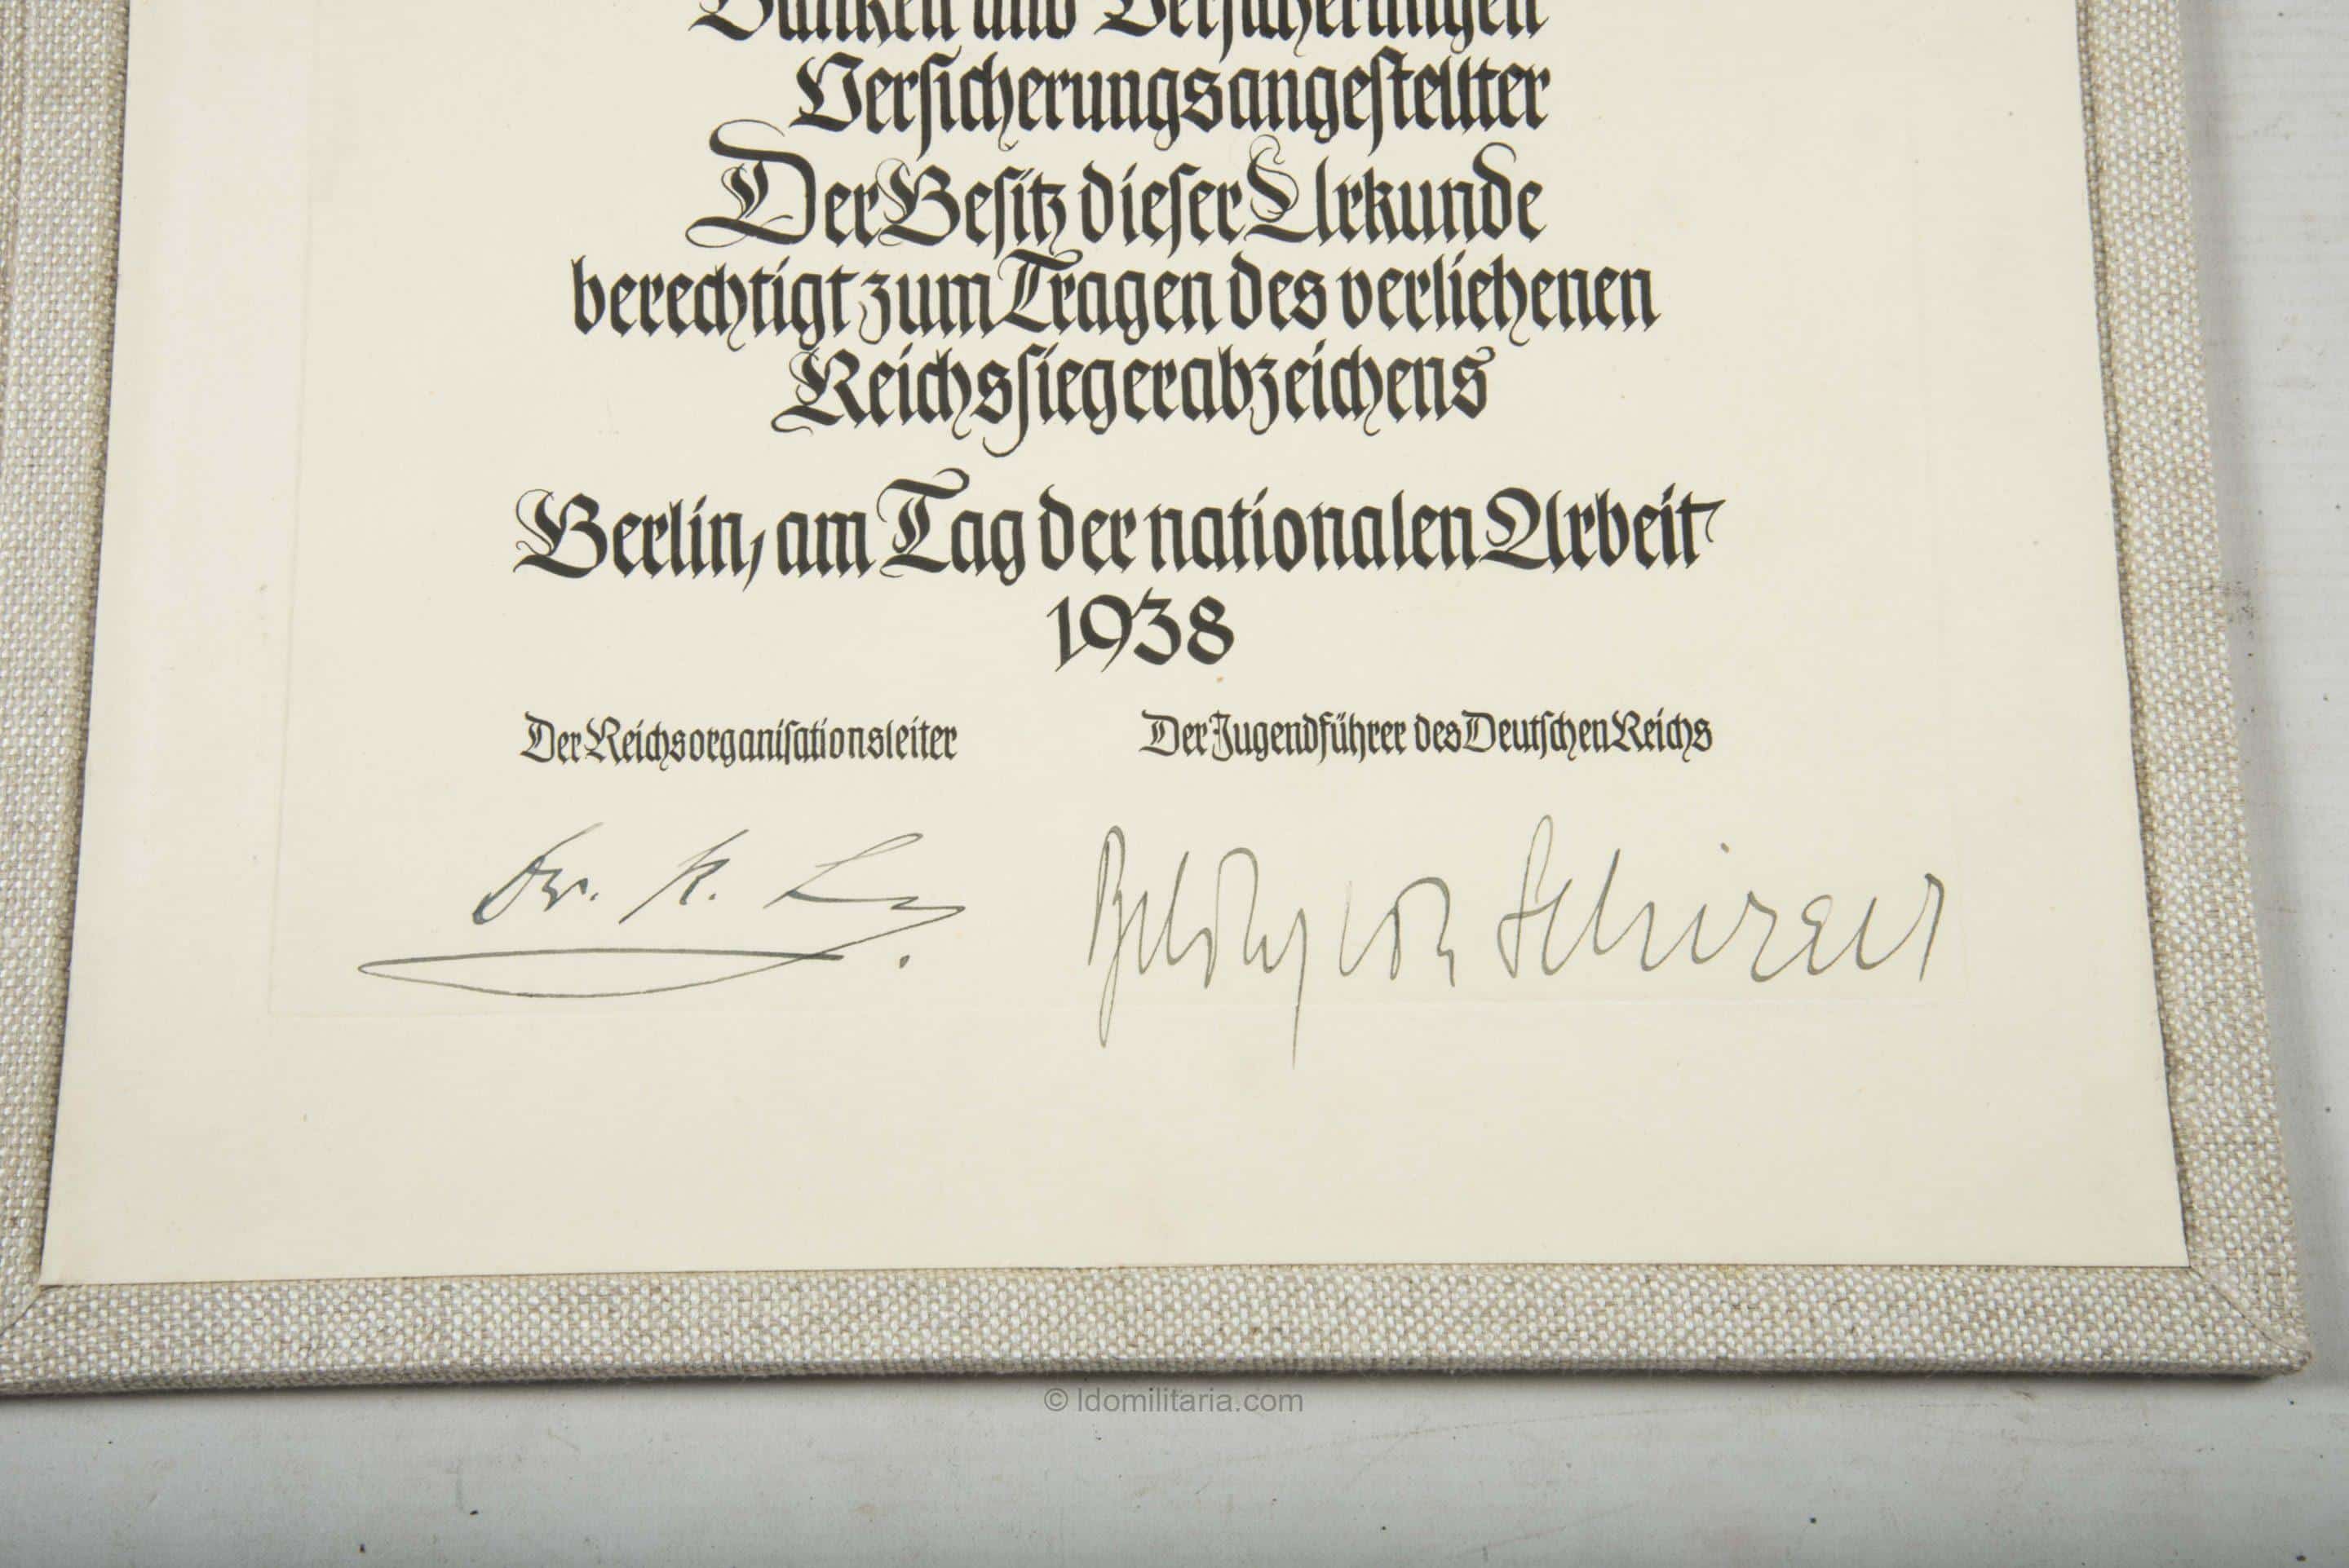 Banken und Versicherungen
Versicherungsangestellter
Der Besitz dieser Urkunde
berechtigt zum Tragen des verliehenen
Reichssiegerabzeichens
Berlin, am Tag der nationalen Arbeit
1938
Der Reichsorganisationsleiter
Der Jugendführer des Deutschen Reichs
Dr. R. Ley.
Baldur von Schirach
© ldomilitaria.com